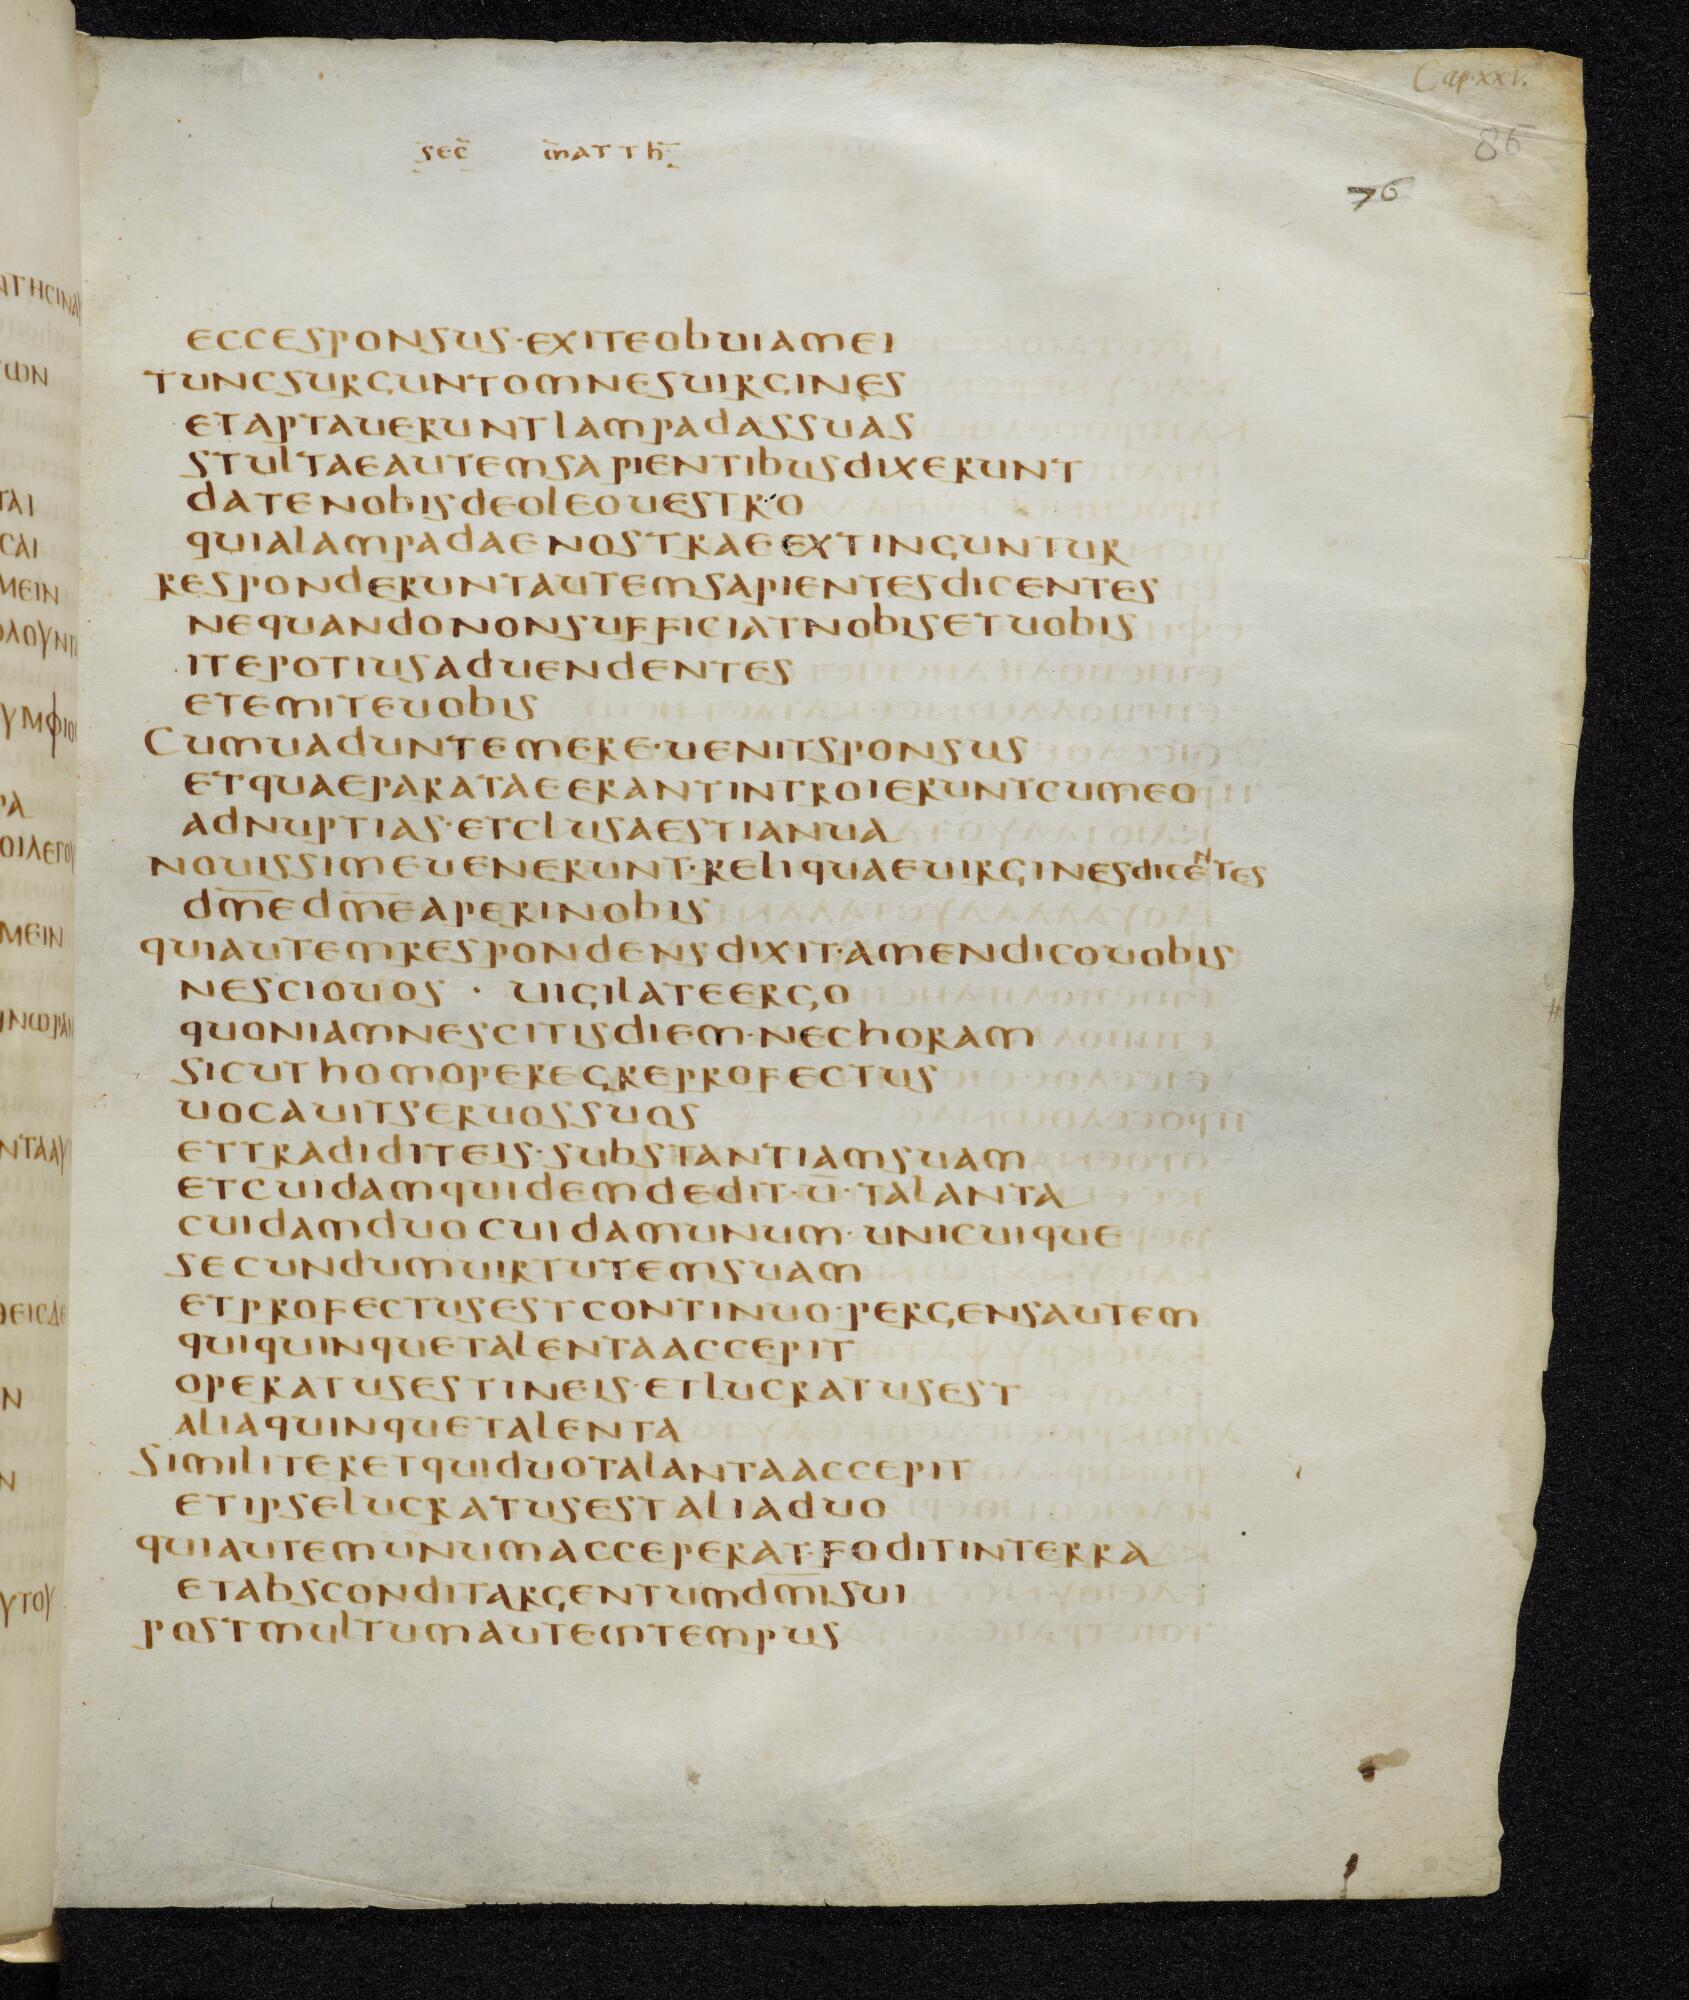 Cap. xxv.
86
sec̄ m̄atth̄
76
eccesponsus·exiteobuiamei
tuncsurguntomnesuirgines
etaptaueruntlampadassuas
stultaeautemsapientibusdixerunt
datenobisdeoleouestro
quialampadaenostraeextinguntur
responderuntautemsapientesdicentes
nequandononsufficiatnobisetuobis
itepotiusaduendentes
etemiteuobis
Cumuaduntemere·uenitsponsus
etquaeparataeerantintroieruntcumeo
adnuptias·etclusaestianua
nouissimeuenerunt·reliquaeuirginesdicentes
dm̄edm̄eaperinobis
quiautemrespondensdixit·amendicouobis
nesciouos · uigilateergo
quoniamnescitisdiem·nechoram
sicuthomoperegreprofectus
uocauitseruossuos
ettradiditeis·substantiamsuam
etcuidamquidemdedit·ū·talanta
cuidamduocuidamunum·unicuique
secundumuirtutemsuam
etprofectusestcontinuo·pergensautem
quiquinquetalentaaccepit
operatusestineis·etlucratusest
aliaquinquetalenta
Similiteretquiduotalantaaccepit
etipselucratusestaliaduo
quiautemunumacceperat·foditinterra
etabsconditargentumdm̄isui
postmultumautemtempus